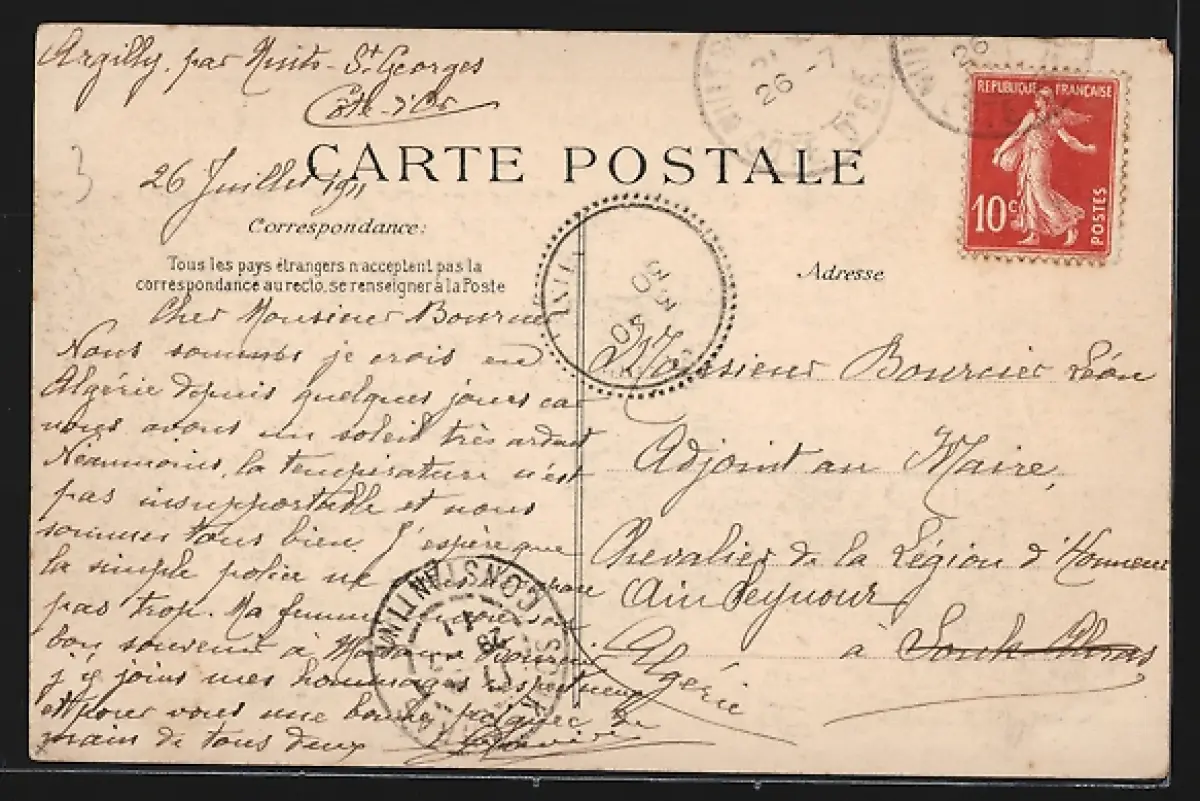 Argilly, par Nuits-St Georges
Côte-d'Or
26 Juillet 1911
CARTE POSTALE
Correspondance:
Tous les pays étrangers n'acceptent pas la
correspondance au recto, se renseigner à la Poste
Cher Monsieur Bourcier
Nous sommes je crois en
Algérie depuis quelques jours car
nous avons un soleil très ardent
Néanmoins, la température n'est
pas insupportable et nous
sommes tous bien. J'espère que
la simple police ne
pas trop. Ma femme
bon souvenir à Madame Bourcier
j'y joins mes hommages respectueux
et pour vous une bonne poignée de
main de tous deux
Adresse
Monsieur Bourcier Léon
Adjoint au Maire,
Chevalier de la Légion d'Honneur
Ain Seynour
à Souk-Ahras
Algérie
REPUBLIQUE FRANÇAISE
10 c.
POSTES
26 -7
CÔTE D'OR
26
CONSTANTINE
3